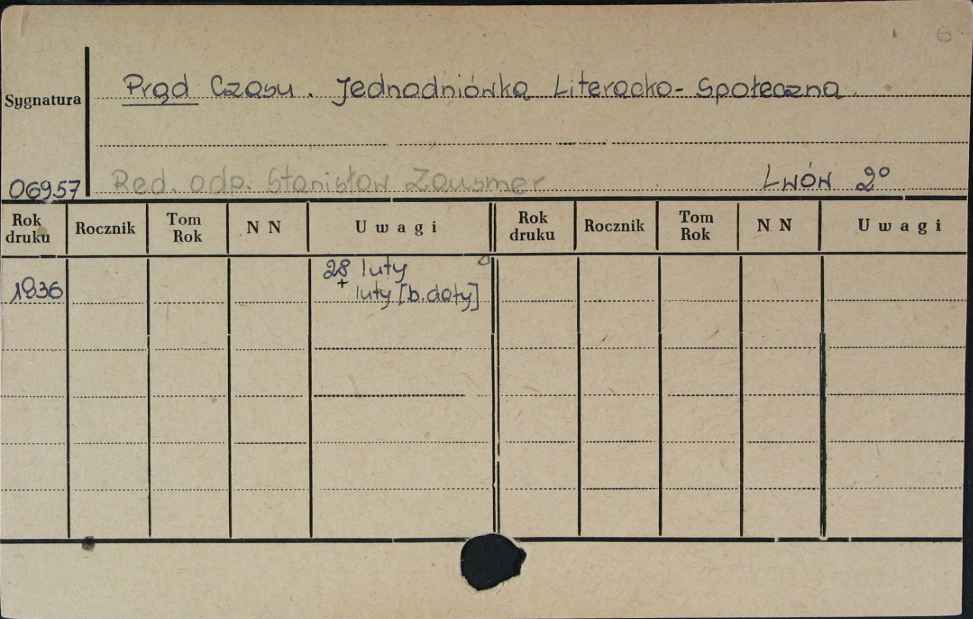 Sygnatura
Prąd Czasu. Jednodniówka Literacko-Społeczna.
06957
Red. odp. Stanisław Zausmer
Lwów 2°
Rok druku Rocznik Tom Rok N N Uwagi Rok druku Rocznik Tom Rok N N Uwagi
1936 28 luty
+ luty [b.daty]